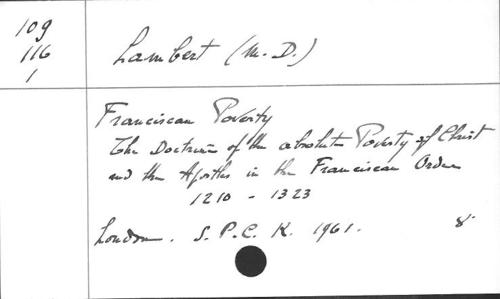 109
116
1
Lambert (M.D.)
Franciscan Poverty
The Doctrine of the absolute Poverty of Christ
and the Apostles in the Franciscan Order
1210 - 1323
London. S.P.C.K. 1961. 8°